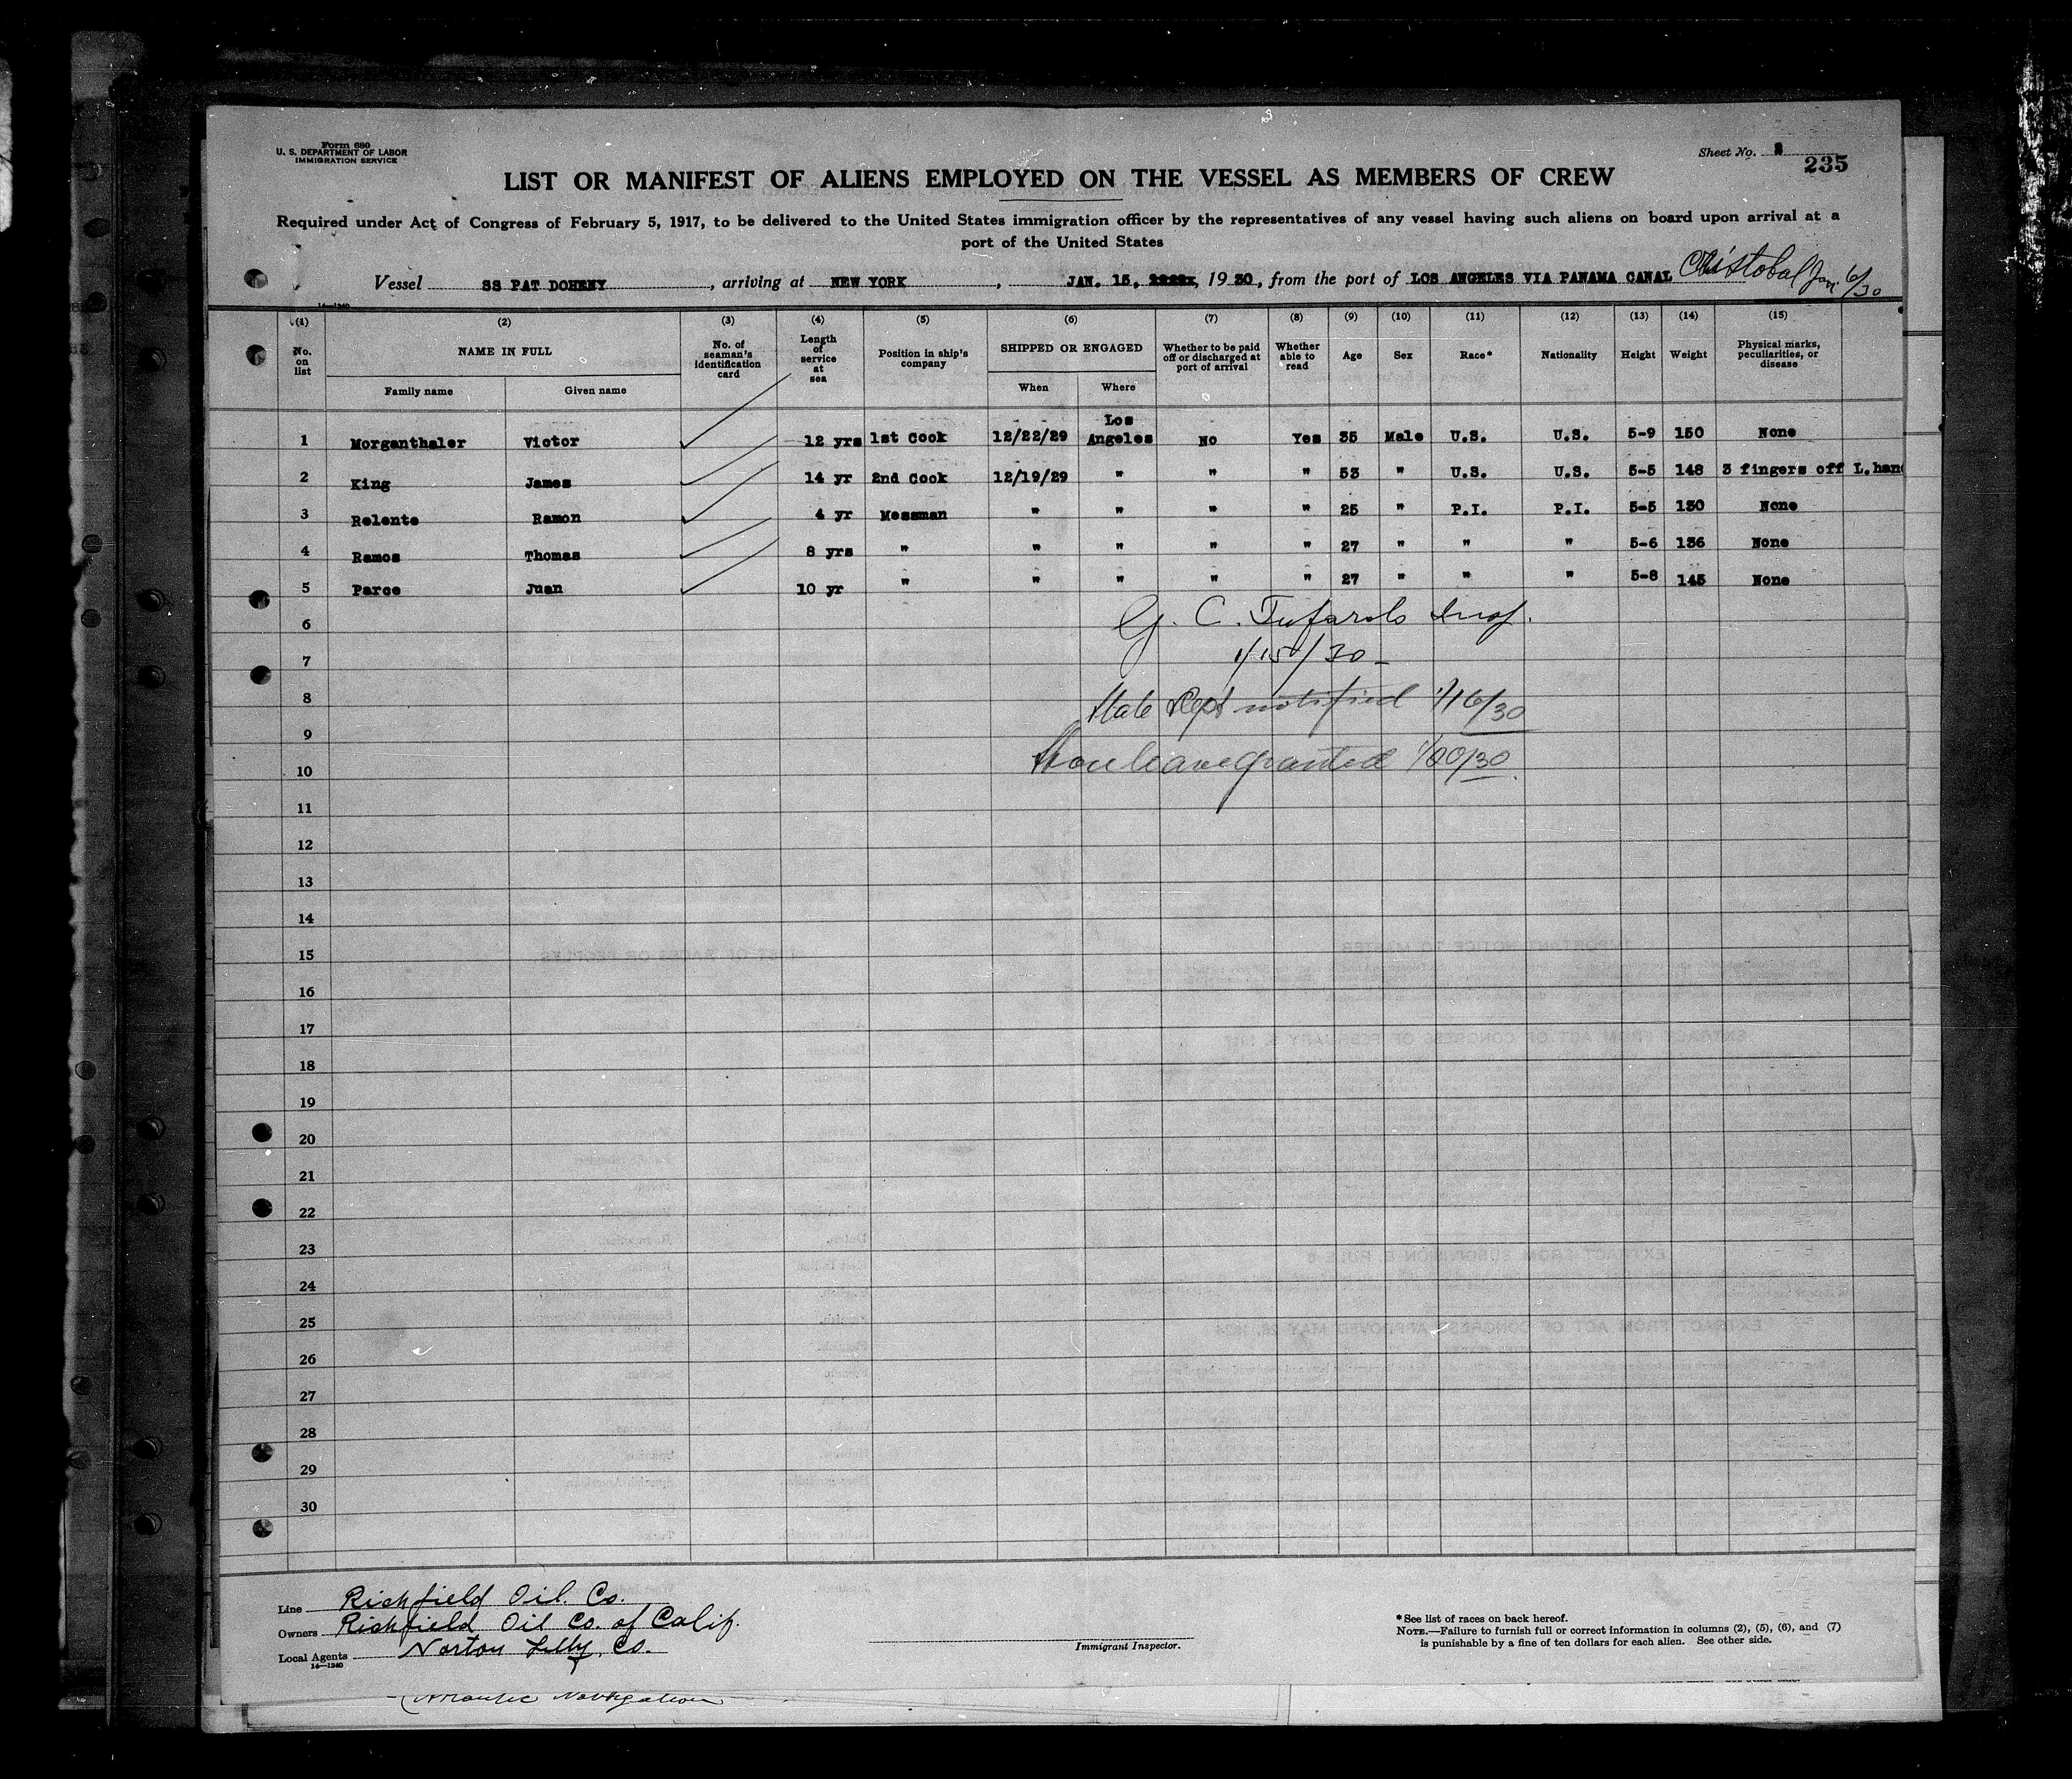 Form 680
U. S. DEPARTMENT OF LABOR
IMMIGRATION SERVICE
Sheet No.
235
LIST OR MANIFEST OF ALIENS EMPLOYED ON THE VESSEL AS MEMBERS OF CREW
Required under Act of Congress of February 5, 1917, to be delivered to the United States immigration officer by the representatives of any vessel having such aliens on board upon arrival at a
port of the United States
Vessel SS PAT DOHENY, arriving at NEW YORK, JAN. 15, 1930, from the port of LOS ANGELES VIA PANAMA CANAL Cristobal Jan. 6/30
14—1240
(1) (2) (3) (4) (5) (6) (7) (8) (9) (10) (11) (12) (13) (14) (15)
No. on list NAME IN FULL Family name Given name No. of seaman's identification card Length of service at sea Position in ship's company SHIPPED OR ENGAGED When Where Whether to be paid off or discharged at port of arrival Whether able to read Age Sex Race* Nationality Height Weight Physical marks, peculiarities, or disease
1 Morganthaler Victor 12 yrs 1st Cook 12/22/29 Los Angeles No Yes 35 Male U.S. U.S. 5-9 150 None
2 King James 14 yr 2nd Cook 12/19/29 " " " 53 " U.S. U.S. 5-5 148 3 fingers off L.han
3 Relente Ramon 4 yr Messman " " " " 25 " P.I. P.I. 5-5 130 None
4 Ramos Thomas 8 yrs " " " " " 27 " " " 5-6 136 None
5 Parce Juan 10 yr " " " " " 27 " " " 5-8 145 None
6 G. C. Insp.
7 1/15/30
8 State Dept notified 1/16/30
9
10 granted
11
12
13
14
15
16
17
18
19
20
21
22
23
24
25
26
27
28
29
30
Line Richfield Oil. Co.
Owners Richfield Oil Co. of Calif.
Local Agents Norton Lilly, Co.
14—1240
Immigrant Inspector.
*See list of races on back hereof.
NOTE.—Failure to furnish full or correct information in columns (2), (5), (6), and (7)
is punishable by a fine of ten dollars for each alien. See other side.